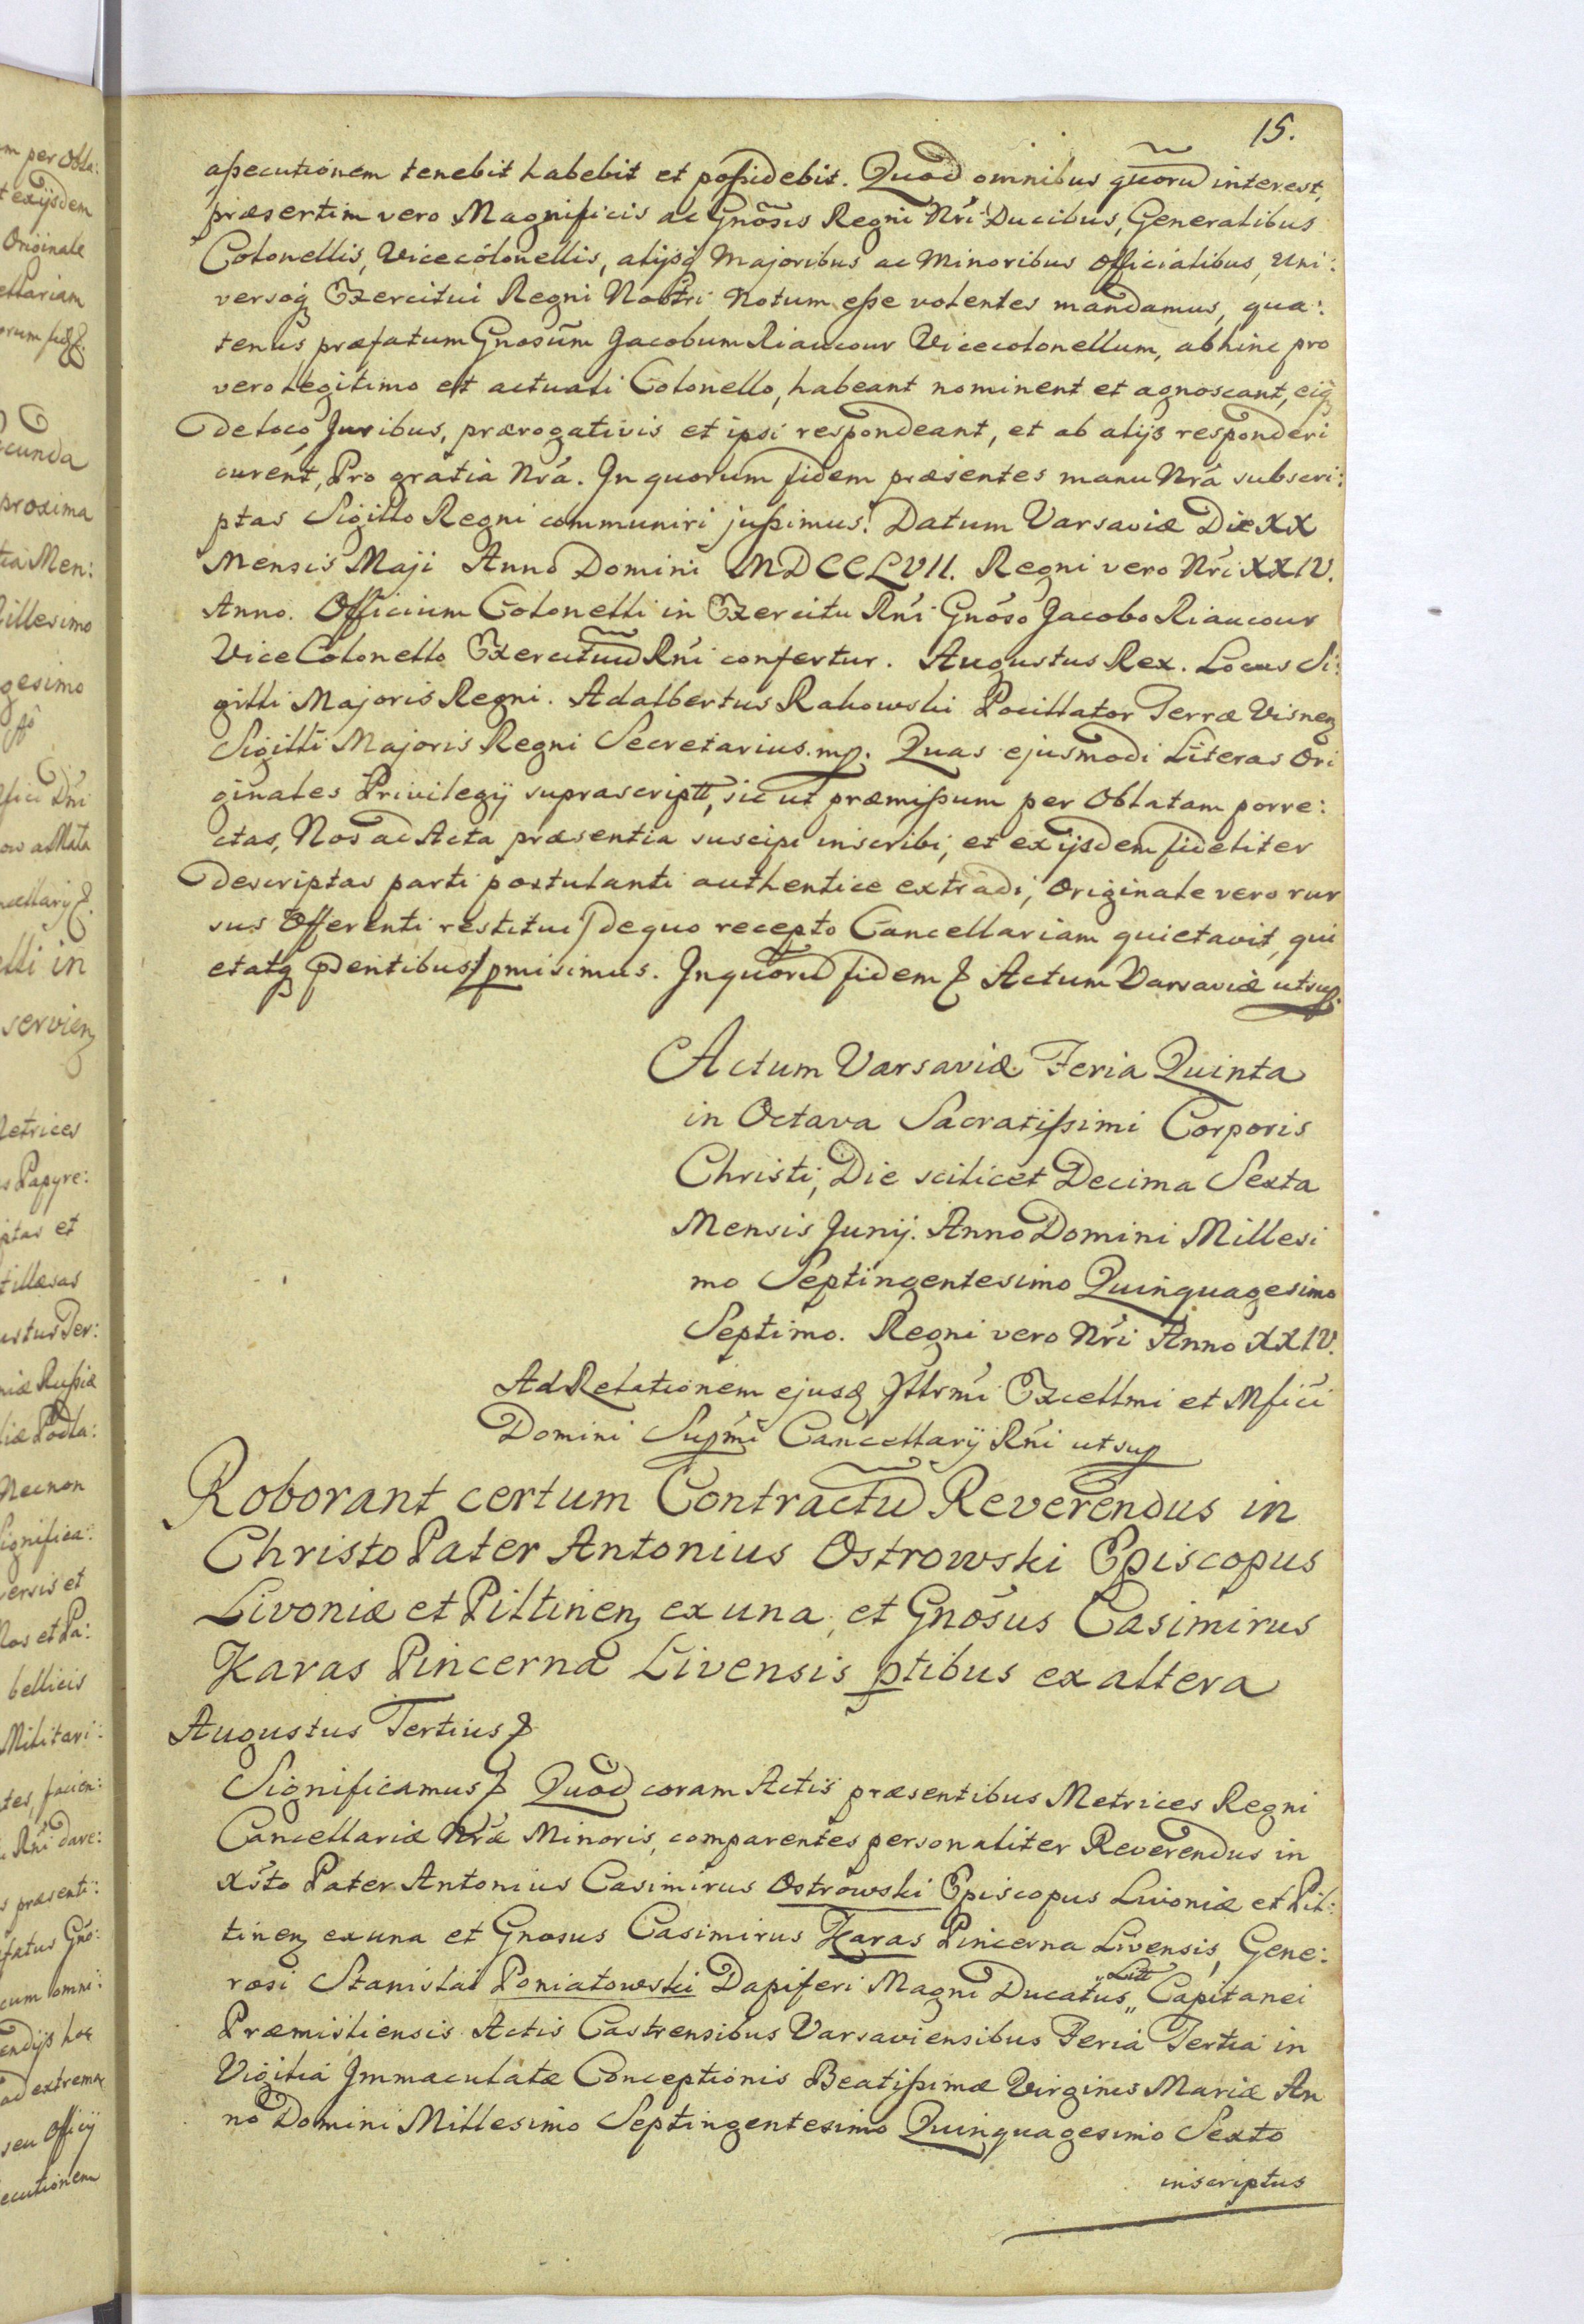 15.
aßecutionem tenebit habebit et poßidebit. Quod omnibus quorũ interest,
præsertim vero Magnificis ac Gnõsis Regni Nri Ducibus, Generalibus
Colonellis, Vicecolonellis, alijsq Majoribus ac Minoribus Officialibus, Uni:
versoq Exercitui Regni Nostri Notum eße volentes mandamus, qua:
tenus præfatum Gnosũm Jacobum Riaucour Vicecolonellum, abhinc pro
vero legitimo et actuali Colonello, habeant nominent et agnoscant, eiq
de loco Juribus, prærogativis et ipsi respondeant, et ab alijs responderi
curent, Pro gratia Nrá. In quorum fidem præsentes manu Nrá subscri:
ptas Sigillo Regni communiri jußimus. Datum Varsaviæ Die XX
Mensis Maji Anno Domini MDCCLVII. Regni vero Nri XXIV.
Anno. Officium Colonelli in Exercitu Rńi Gnóso Jacobo Riaucour
Vice Colonello Exercituũ Rńi confertur. Augustus Rex. Locus Si:
gilli Majoris Regni. Adalbertus Rakowski Pocillator Terræ Visneņ
Sigilli Majoris Regni Secretarius. mp. Quas ejusmodi Literas Ori
ginales Privilegij suprascripti, sic ut præmißum per Oblatam porre:
ctas, Nos ad Acta præsentia suscipi inscribi, et ex ijsdem fideliter
descriptas parti postulanti authentice extradi, Originale vero rur
sus Offerenti restitui / de quo recepto Cancellariam quietavit, qui
etatq pdentibus / pmisimus. In quorũ fidem & Actum Varsaviæ utsup.
Actum Varsaviæ Feria Quinta
in Octava Sacratißimi Corporis
Christi, Die scilicet Decima Sexta
Mensis Junij. Anno Domini Millesi
mo Septingentesimo Quinquagesimo
Septimo. Regni vero Nri Anno XXIV.
Ad Relationem ejusd Jllrmi Excellmi et Mfici
Domini Supmi Cancellarij Rńi utsup
Roborant certum Contractũ Reverendus in
Christo Pater Antonius Ostrowski Episcopus
Livoniæ et Piltineņ ex una, et Gnósus Casimirus
Karas Pincerna Livensis ptibus ex altera
Augustus Tertius &
Significamus & Quod coram Actis præsentibus Metrices Regni
Cancellariæ Nræ Minoris, comparentes personaliter Reverendus in
Xsto Pater Antonius Casimirus Ostrowski Episcopus Livoniæ et Pil:
tineņ ex una et Gnosus Casimirus Karas Pincerna Livensis, Gene:
rosi Stanislai Poniatowski Dapiferi Magni Ducatus „Litt„ Capitanei
Præmisliensis Actis Castrensibus Varsaviensibus Feria Tertia in
Vigilia Jmmaculatæ Conceptionis Beatißimæ Virginis Mariæ An
no Domini Millesimo Septingentesimo Quinquagesimo Sexto
inscriptus